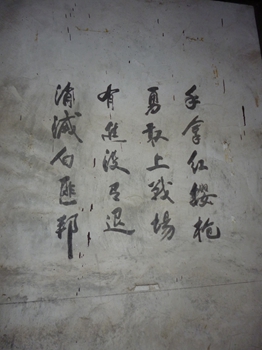 手拿红缨枪
勇敢上战場
有進没有退
消滅白匪邦